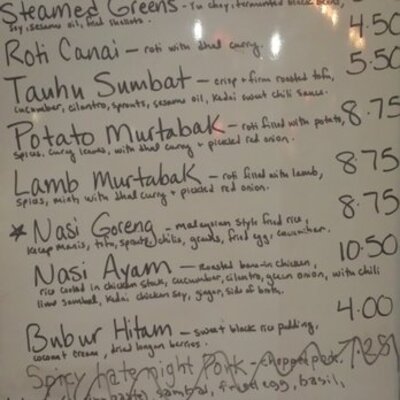 Steamed Greens - Yu choy, fermented black beans,
soy, sesame oil, fried shallots.
4.50
Roti Canai - roti with dhal curry.
5.50
Tauhu Sumbat - crisp + firm roasted tofu,
cucumber, cilantro, sprouts, sesame oil, Kedai sweet chili sauce.
8.75
Potato Murtabak - roti filled with potato,
spices, curry leaves, with dhal curry + pickled red onion.
8.75
Lamb Murtabak - roti filled with lamb,
spices, mint, with dhal curry + pickled red onion.
8.75
* Nasi Goreng - malaysian style fried rice,
kecap manis, tofu, sprouts, chilis, greens, fried egg, cucumber.
10.50
Nasi Ayam - Roasted bone-in chicken,
rice cooked in chicken stock, cucumber, cilantro, green onion, with chili
lime sambal, Kedai chicken soy, ginger, side of broth.
4.00
Bubur Hitam - sweet black rice pudding,
coconut cream, dried longan berries.
Spicy Late night Pork - chopped pork,
sambal, fried egg, basil,